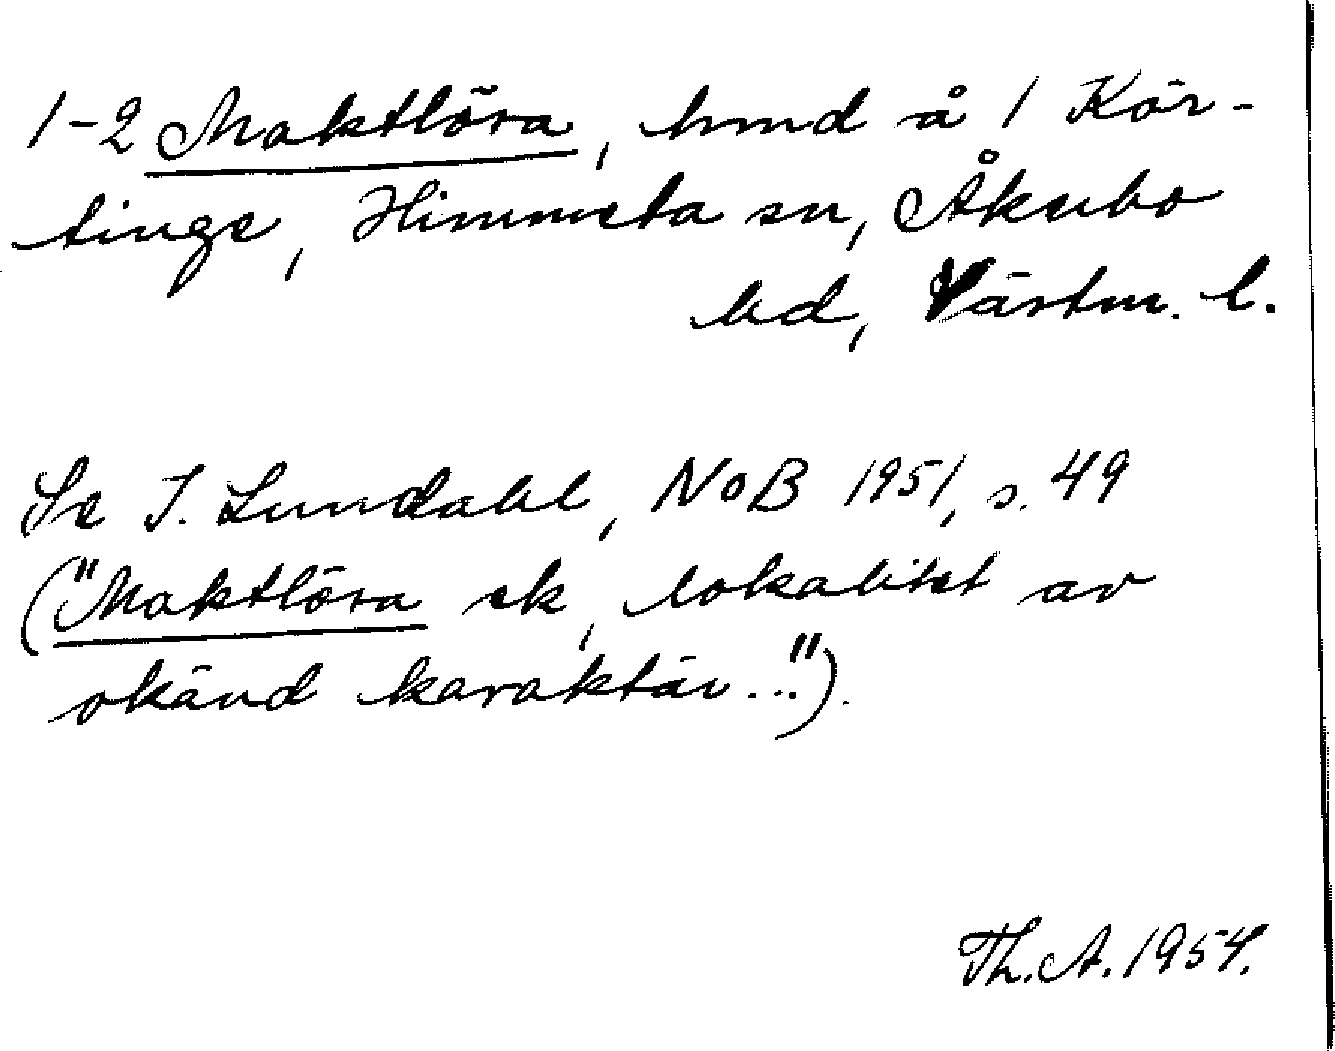 1-2 Maktlösa, hmd å 1 Kär-
tinge, Himmeta sn, Åkerbo
hd, Västm. l.
Se I. Lundahl, NoB 1951, s. 49
("Maktlösa ek, lokalitet av
okänd karaktär...").
Th. A. 1954.